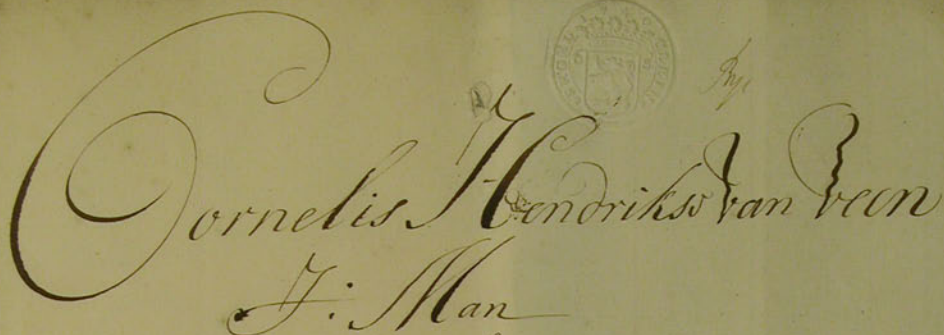 Cornelis Hendrikse van Veen
J: Man